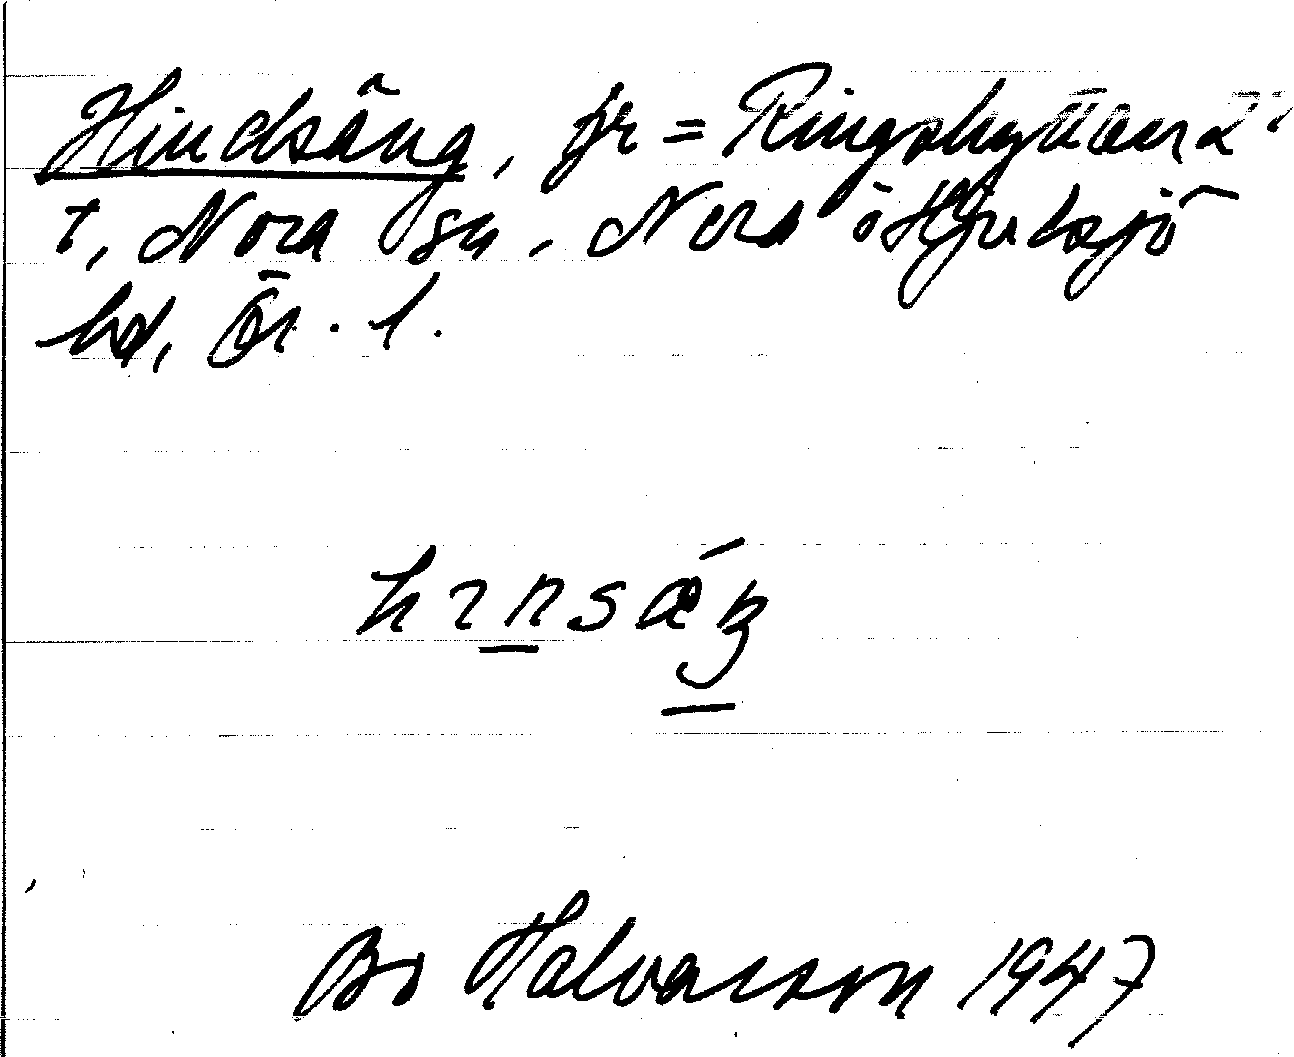 Hindsäng, fr = Ringshyttan 2
t, Nora sn, Nora o Hjulsjö
hd, Ör. l.
hınsǽŋ
Bo Halvarson 1947